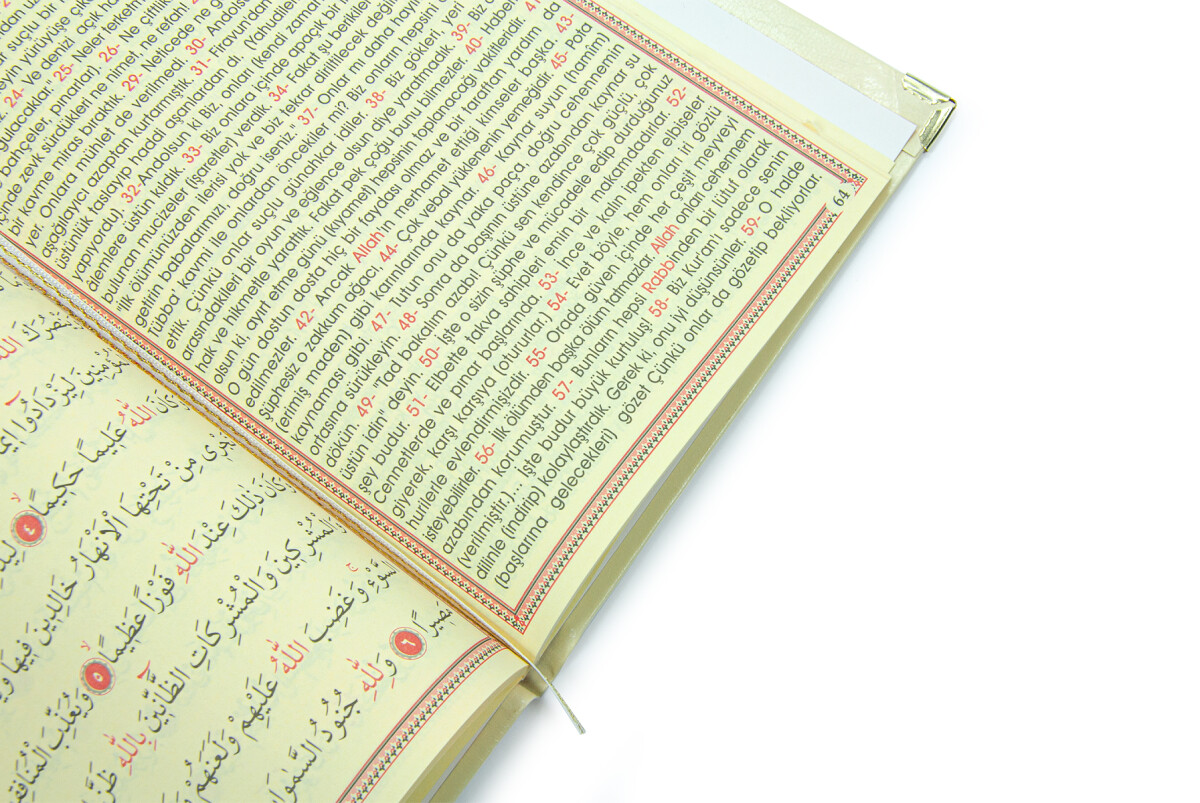 suçlu bir
24- Ve denizi, açık
gulacaklar. 25- Neler terketmişlerdi
bahçeler, pınarlar), 26- Ne çiftlik
de zevk sürdükleri ne nimet, ne refah!
bir kavme miras bıraktık. 29- Neticede ne gö
yer. Onlara mühlet de verilmedi. 30- Andolsun
aşağılayıcı azaptan kurtarmıştık. 31- Firavun'dan.
üstünlük taslayıp haddi aşanlardan di.
yapıyordu). 32- Andolsun ki Biz, onları (kendi zamanları
âlemlere üstün kıldık. 33- Biz onlara içinde apaçık bir
bulunan mucizeler (işaretler) verdik. 34- Fakat şu berikiler
ilk ölümümüzden ilerisi yok ve biz tekrar diriltilecek değil
getirin babalarımızı, doğru iseniz." 37- Onlar mı daha hayırlı
Tübba' kavmi ile onlardan öncekiler mi? Biz onların hepsini
ettik. Çünkü onlar suçlu günahkâr idiler. 38- Biz gökleri, yeri
arasındakileri bir oyun ve eğlence olsun diye yaratmadık. 39- Biz
hak ve hikmetle yarattık. Fakat pek çoğu bunu bilmezler. 40-
olsun ki, ayırt etme günü (kıyamet) hepsinin toplanacağı vakitleridir. 41-
O gün dostun dosta hiç bir faydası olmaz ve bir taraftan yardım da
edilmezler. 42- Ancak Allah'ın merhamet ettiği kimseler başka. 43-
şüphesiz o zakkum ağacı, 44- Çok vebal yüklenenin yemeğidir. 45- Pota
(erimiş maden) gibi karınlarında kaynar. 46- kaynar suyun (hamîm)
kaynaması gibi. 47- Tutun onu da yaka paça, doğru cehennemin
ortasına sürükleyin. 48- Sonra da başının üstüne azabından kaynar su
dökün. 49- "Tad bakalım azabı! Çünkü sen kendince çok güçlü, çok
üstün idin" deyin. 50- İşte o sizin şüphe ve mücadele edip durduğunuz
şey budur. 51- Elbette takva sahipleri emin bir makamdadırlar. 52-
Cennetlerde ve pınar başlarında. 53- İnce ve kalın ipekten elbiseler
giyerek, karşı karşıya (otururlar.) 54- Evet böyle, hem onları iri gözlü
hurilerle evlendirmişizdir. 55- Orada güven içinde her çeşit meyveyi
isteyebilirler. 56- İlk ölümden başka ölüm tatmazlar. Allah onları cehennem
azabından korumuştur. 57- Bunların hepsi Rabbinden bir lütuf olarak
(verilmiştir.)... İşte budur büyük kurtuluş! 58- Biz Kur'an'ı sadece senin
dilinle (indirip) kolaylaştırdık. Gerek ki, onu iyi düşünsünler. 59- O halde
(başlarına gelecekleri) gözet Çünkü onlar da gözetip bekliyorlar.
الْمُؤْمِنِينَ لِيَزْدَادُوا
كَانَ اللّٰهُ عَلِيمًا حَكِيمًا ٤
تَجْرِى مِنْ تَحْتِهَا الْاَنْهَارُ خَالِدِينَ فِيهَا
كَانَ ذٰلِكَ عِنْدَ اللّٰهِ فَوْزًا عَظِيمًا ٥ وَيُعَذِّبَ
وَالْمُشْرِكِينَ وَالْمُشْرِكَاتِ الظَّانِّينَ بِاللّٰهِ
السَّوْءِ وَغَضِبَ اللّٰهُ عَلَيْهِمْ وَلَعَنَهُمْ
٦ وَلِلّٰهِ جُنُودُ